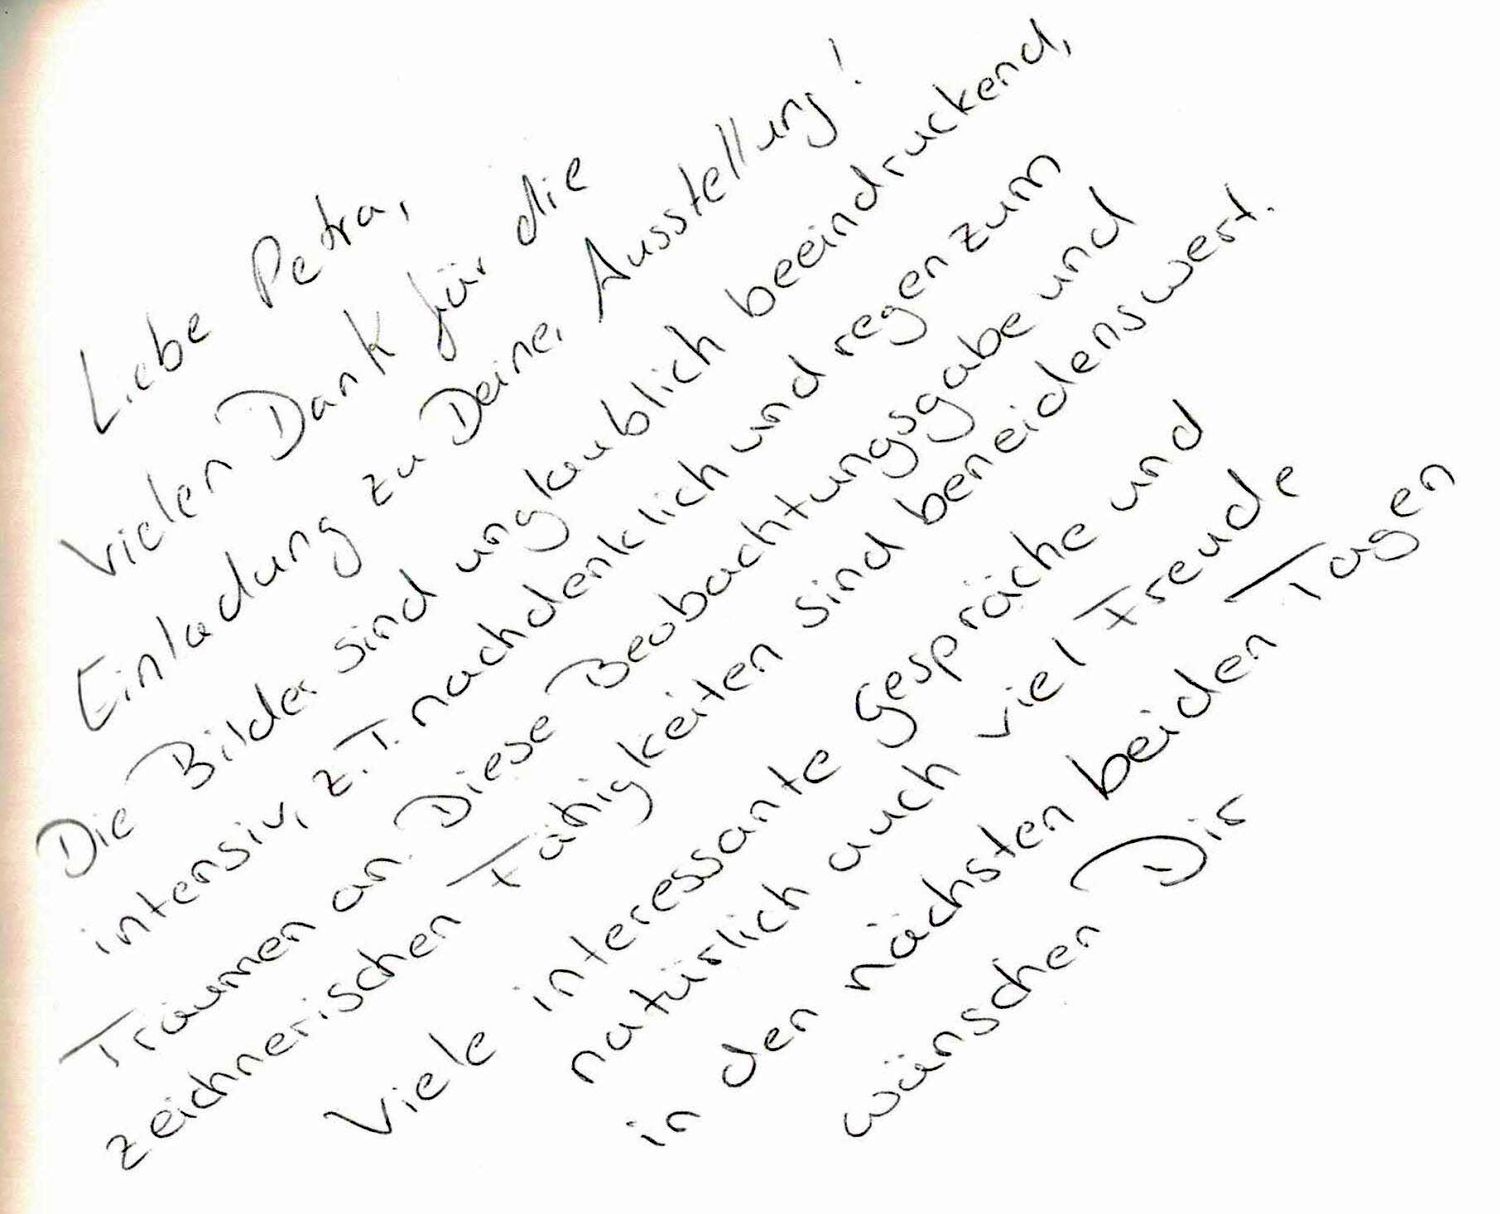 Liebe Petra,
vielen Dank für die
Einladung zu Deiner Ausstellung!
Die Bilder sind unglaublich beeindruckend,
intensiv, z.T. nachdenklich und regen zum
Träumen an. Diese Beobachtungsgabe und
zeichnerischen Fähigkeiten sind beneidenswert.
Viele interessante Gespräche und
natürlich auch viel Freude
in den nächsten beiden Tagen
wünschen Dir